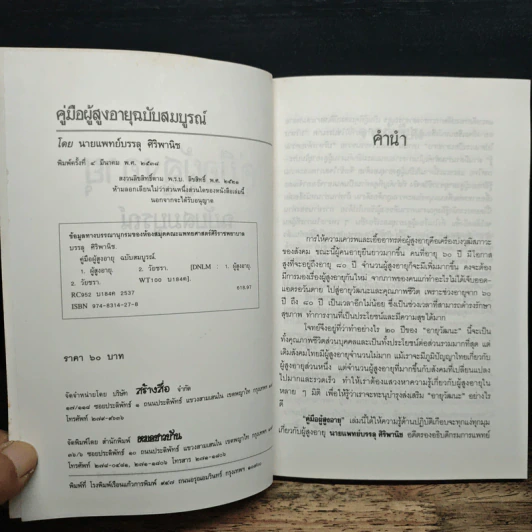 คู่มือผู้สูงอายุฉบับสมบูรณ์
โดย นายแพทย์บรรลุ ศิริพานิช
พิมพ์ครั้งที่ ๔ มีนาคม พ.ศ. ๒๕๓๘
สงวนลิขสิทธิ์ตาม พ.ร.บ. ลิขสิทธิ์ พ.ศ. ๒๕๒๑
ห้ามลอกเลียนไม่ว่าส่วนหนึ่งส่วนใดของหนังสือเล่มนี้
นอกจากจะได้รับอนุญาต
ข้อมูลทางบรรณานุกรมของห้องสมุดคณะแพทยศาสตร์ศิริราชพยาบาล
บรรลุ ศิริพานิช.
คู่มือผู้สูงอายุ ฉบับสมบูรณ์.
1. ผู้สูงอายุ. 2. วัยชรา. [DNLM : 1. ผู้สูงอายุ.
2. วัยชรา. WT100 บ184ค].
RC952 บ184ค 2537 618.97
ISBN 974-8314-27-8
ราคา ๖๐ บาท
จัดจำหน่ายโดย บริษัท สร้างสื่อ จำกัด
๑๗/๑๑๗ ซอยประดิพัทธ์ ๑ ถนนประดิพัทธ์ แขวงสามเสนใน เขตพญาไท กรุงเทพฯ
โทรสาร
จัดพิมพ์โดย สำนักพิมพ์ หมอชาวบ้าน
๓๖/๖ ซอยประดิพัทธ์ ๑๐ ถนนประดิพัทธ์ แขวงสามเสนใน เขตพญาไท กรุงเทพฯ
โทรศัพท์ โทรสาร
พิมพ์ที่ โรงพิมพ์เรือนแก้วการพิมพ์ ๙๔๗ ถนนอรุณอมรินทร์ กรุงเทพฯ
คำนำ
การให้ความเคารพและเอื้ออาทรต่อผู้สูงอายุคือเครื่องบ่งวุฒิสภาวะ
ของสังคม ขณะนี้ผู้คนอายุยืนยาวมากขึ้น คนที่อายุ ๖๐ ปี มีโอกาส
สูงที่จะอยู่ถึงอายุ ๘๐ ปี จำนวนผู้สูงอายุก็จะมีเพิ่มมากขึ้น คงจะต้อง
มีการมองเรื่องผู้สูงอายุกันใหม่ จากภาพของคนแก่ทำอะไรไม่ได้เจ็บออด-
แอดรอวันตาย ไปสู่อายุวัฒนะและคุณภาพชีวิต เพราะช่วงอายุจาก ๖๐
ปี ถึง ๘๐ ปี เป็นเวลาอีกไม่น้อย ซึ่งเป็นช่วงเวลาที่สามารถดำรงรักษา
สุขภาพ ทำการงานที่เป็นประโยชน์และมีความสุขได้มาก
โจทย์จึงอยู่ที่ว่าทำอย่างไร ๒๐ ปีของ “อายุวัฒนะ” นี้จะเป็น
ทั้งคุณภาพชีวิตส่วนบุคคลและเป็นทั้งประโยชน์ต่อส่วนรวมมากที่สุด แต่
เดิมสังคมไทยมีผู้สูงอายุจำนวนไม่มาก แม้เราจะมีภูมิปัญญาไทยเกี่ยวกับ
ผู้สูงอายุส่วนหนึ่ง แต่จำนวนผู้สูงอายุที่มากขึ้นกับสังคมที่เปลี่ยนแปลง
ไปมากและรวดเร็ว ทำให้เราต้องแสวงหาความรู้เกี่ยวกับผู้สูงอายุใน
หลาย ๆ มิติ เพื่อให้รู้ว่าเราจะหนุนบำรุงส่งเสริม “อายุวัฒนะ” อย่างไร
ดี
“คู่มือผู้สูงอายุ” เล่มนี้ได้ให้ความรู้ด้านปฏิบัติเกือบจะทุกแง่ทุกมุม
เกี่ยวกับผู้สูงอายุ นายแพทย์บรรลุ ศิริพานิช อดีตรองอธิบดีกรมการแพทย์